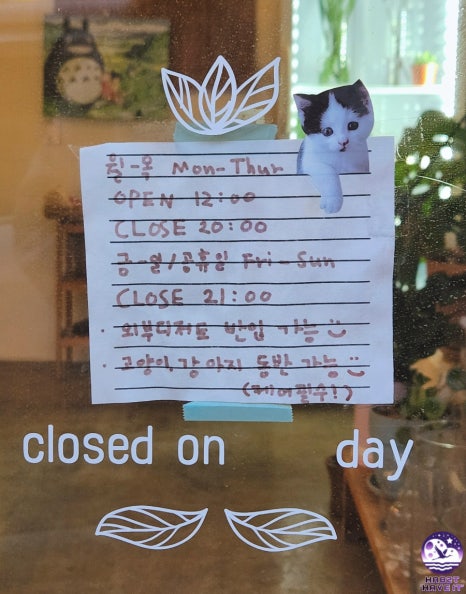 월-목 Mon-Thur
OPEN 12:00
CLOSE 20:00
금-일/공휴일 Fri-Sun
CLOSE 21:00
· 외부디저트 반입 가능
· 고양이, 강아지 동반 가능
(케어필수!)
closed on day
HABZT
HAVE IT